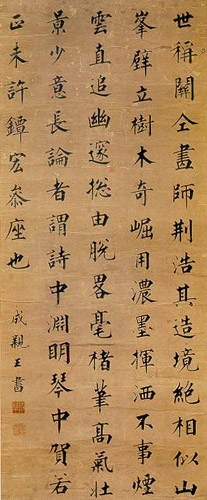 世稱關仝畫師荆浩其造境絶相似山
峯壁立樹木奇崛用濃墨揮洒不事煙
雲直追幽邃揔由脱畧毫楮筆髙氣壯
景少意長論者謂詩中淵明琴中賀若
正未許鐔宏泰座也
成親王書